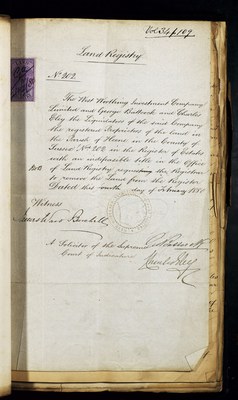 Vol 34 f 109
Land Registry
No 202.
The West Worthing Investment Company
Limited and George and Charles
the Liquidators of the said Company
the registered Proprietors of the Land in
the Parish of in the County of
Sussex No 202 in the Register of Estates
with an indefeasible title in the Office
of Land Registry the Registrar
to remove the Land from the Register
Dated this day of February 1881
Witness
A Solicitor of the Supreme
Court of Judicature